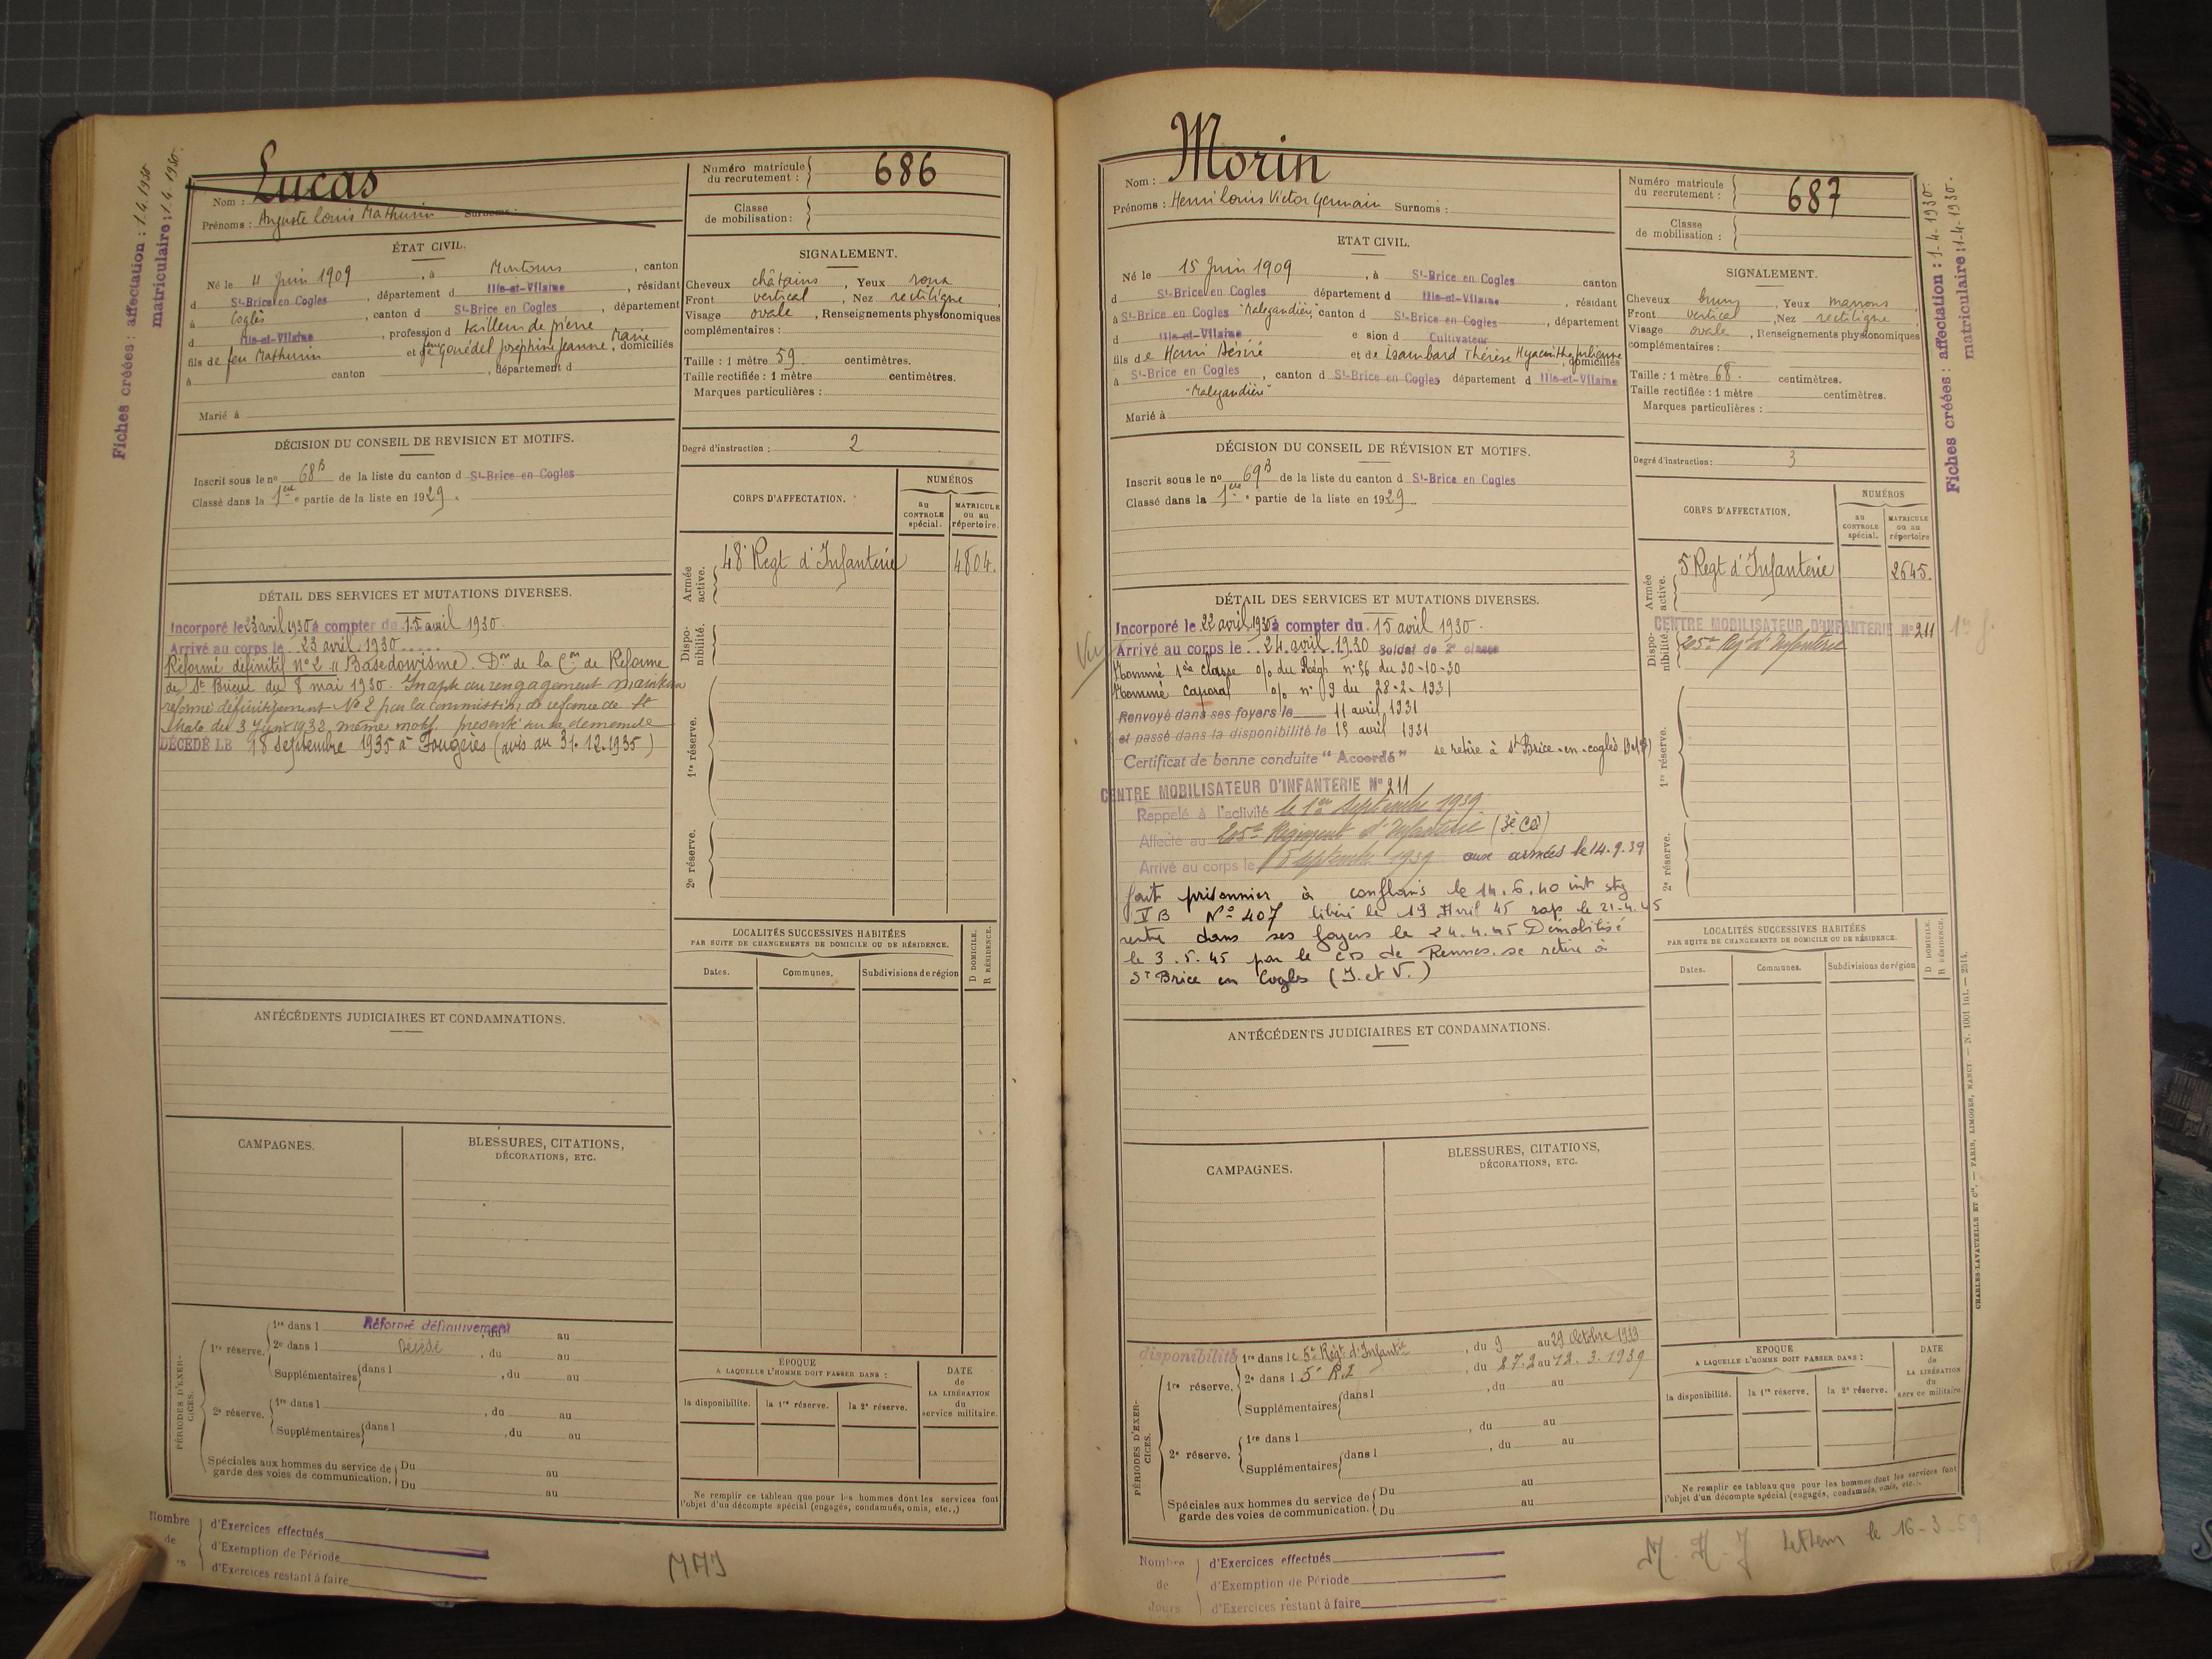 Fiches créées : affectation : 1.4.1930
matriculaire : 1.4.1930.
Lucas
Nom :
Prénoms : Auguste Louis Mathurin Surnoms :
Numéro matricule du recrutement : 686
Classe de mobilisation :
ÉTAT CIVIL.
Né le 4 Juin 1909, à Montours, canton
d St-Brice en Cogles, département d Ille-et-Vilaine, résidant
à Coglès, canton d St-Brice en Cogles, département
d Ille-et-Vilaine, profession d tailleur de pierre
fils de feu Mathurin et de Gouédel Joséphine Jeanne Marie, domiciliés
à canton , département d
Marié à
SIGNALEMENT.
Cheveux châtains, Yeux roux
Front vertical, Nez rectiligne,
Visage ovale, Renseignements physionomiques
complémentaires :
Taille : 1 mètre 59 centimètres.
Taille rectifiée : 1 mètre centimètres.
Marques particulières :
Degré d'instruction : 2
DÉCISION DU CONSEIL DE REVISION ET MOTIFS.
Inscrit sous le no 68B de la liste du canton d St-Brice en Cogles
Classé dans la 1ere partie de la liste en 1929.
CORPS D'AFFECTATION.
NUMÉROS
au CONTROLE spécial.
MATRICULE ou au répertoire.
Armée active.
48e Regt d'Infanterie 4804.
Disponibilité.
1re réserve.
2e réserve.
DÉTAIL DES SERVICES ET MUTATIONS DIVERSES.
Incorporé le 23 avril 1930 à compter du 15 avril 1930.
Arrivé au corps le 23 avril 1930
Réformé définitif n° 2 "Basedowisme". Don de la Con de Réforme
de St Brieuc du 8 mai 1930. Inapte au rengagement maintenu
réformé définitivement No 2 par la commission de réforme de St
Malo du 3 Juin 1932 même motif. présenté sur sa demande
DÉCÉDÉ LE 18 Septembre 1935 à Fougères (avis du 31.12.1935)
LOCALITÉS SUCCESSIVES HABITÉES
PAR SUITE DE CHANGEMENTS DE DOMICILE OU DE RÉSIDENCE.
Dates. Communes. Subdivisions de région
D DOMICILE. R RÉSIDENCE.
ANTÉCÉDENTS JUDICIAIRES ET CONDAMNATIONS.
CAMPAGNES.
BLESSURES, CITATIONS,
DÉCORATIONS, ETC.
PÉRIODES D'EXERCICES.
1re réserve. 1re dans l Réformé définitivement, du au
2e dans l Décédé, du au
Supplémentaires dans l , du au
2e réserve. 1re dans l , du au
Supplémentaires dans l , du au
Spéciales aux hommes du service de garde des voies de communication. Du au
Du au
ÉPOQUE
A LAQUELLE L'HOMME DOIT PASSER DANS :
la disponibilité. la 1re réserve. la 2e réserve.
DATE de LA LIBÉRATION du service militaire.
Ne remplir ce tableau que pour les hommes dont les services font
l'objet d'un décompte spécial (engagés, condamnés, omis, etc..)
Nombre de
d'Exercices effectués
d'Exemption de Période
d'Exercices restant à faire
Morin
Nom :
Prénoms : Henri Louis Victor Germain Surnoms :
Numéro matricule du recrutement : 687
Classe de mobilisation :
Fiches créées : affectation : 1-4-1930.
matriculaire : 1-4-1930.
ETAT CIVIL.
Né le 15 Juin 1909, à St-Brice en Cogles canton
d St-Brice en Cogles département d Ille-et-Vilaine, résidant
à St-Brice en Cogles "Malegandière", canton d St-Brice en Cogles, département
d Ille-et-Vilaine e sion d Cultivateur
fils de Henri Désiré et de Isambard Thérèse Hyacinthe Julienne, domiciliés
à St-Brice en Cogles, canton d St-Brice en Cogles département d Ille-et-Vilaine
"Malegandière"
Marié à
SIGNALEMENT.
Cheveux bruns, Yeux marrons
Front vertical, Nez rectiligne,
Visage ovale, Renseignements physionomiques
complémentaires :
Taille : 1 mètre 68. centimètres.
Taille rectifiée : 1 mètre centimètres.
Marques particulières :
Degré d'instruction : 3
DÉCISION DU CONSEIL DE RÉVISION ET MOTIFS.
Inscrit sous le no 69B de la liste du canton d St-Brice en Cogles
Classé dans la 1ere partie de la liste en 1929
CORPS D'AFFECTATION.
NUMÉROS
au CONTROLE spécial.
MATRICULE ou au répertoire
Armée active.
5 Regt d'Infanterie 2645.
Disponibilité.
CENTRE MOBILISATEUR D'INFANTERIE No 211
205e Regt d'Infanterie
1re réserve.
2e réserve.
DÉTAIL DES SERVICES ET MUTATIONS DIVERSES.
Incorporé le 22 avril 1930 à compter du 15 avril 1930.
Vu
Arrivé au corps le 24 avril 1930 Soldat de 2e classe
Nommé 1ère classe o/o du Régt n° 36 du 30-10-30
Nommé Caporal o/o n° 9 du 28-2-1931
Renvoyé dans ses foyers le 11 avril 1931
et passé dans la disponibilité le 15 avril 1931
Certificat de bonne conduite "Accordé" se retire à St Brice-en-Coglès
CENTRE MOBILISATEUR D'INFANTERIE No 211
Rappelé à l'activité le 1er Septembre 1939
Affecté au 205e Régiment d'Infanterie (3e Cie)
Arrivé au corps le 5 Septembre 1939 aux armées le 14.9.39
fait prisonnier à conflans le 14.6.40 int stg
V B N° 407 libéré le 19 Avril 45 rap le 21-4-45
rentré dans ses foyers le 24.4.45 Démobilisé
le 3.5.45 par le CD de Rennes. se retire à
St Brice en Cogles (I. et V.)
LOCALITÉS SUCCESSIVES HABITÉES
PAR SUITE DE CHANGEMENTS DE DOMICILE OU DE RÉSIDENCE.
Dates. Communes. Subdivisions de région
D DOMICILE. R RÉSIDENCE.
ANTÉCÉDENTS JUDICIAIRES ET CONDAMNATIONS.
CAMPAGNES.
BLESSURES, CITATIONS,
DÉCORATIONS, ETC.
PÉRIODES D'EXERCICES.
disponibilité
1re réserve. 1re dans le 5e Régt d'Infantie, du 9 au 29 Octobre 1933
2e dans l 5e R.I, du 27.2 au 12.3.1939
Supplémentaires dans l , du au
du au
2e réserve. 1re dans l , du au
Supplémentaires dans l , du au
Spéciales aux hommes du service de garde des voies de communication. Du au
Du au
EPOQUE
A LAQUELLE L'HOMME DOIT PASSER DANS :
la disponibilité. la 1re réserve. la 2e réserve.
DATE de LA LIBÉRATION du service militaire.
Ne remplir ce tableau que pour les hommes dont les services font
l'objet d'un décompte spécial (engagés, condamnés, omis, etc.).
CHARLES-LAVAUZELLE ET Cie. — PARIS, LIMOGES, NANCY — N. 1001 int. — 2514.
Nombre de Jours
d'Exercices effectués
d'Exemption de Période
d'Exercices restant à faire
le 16-3-59